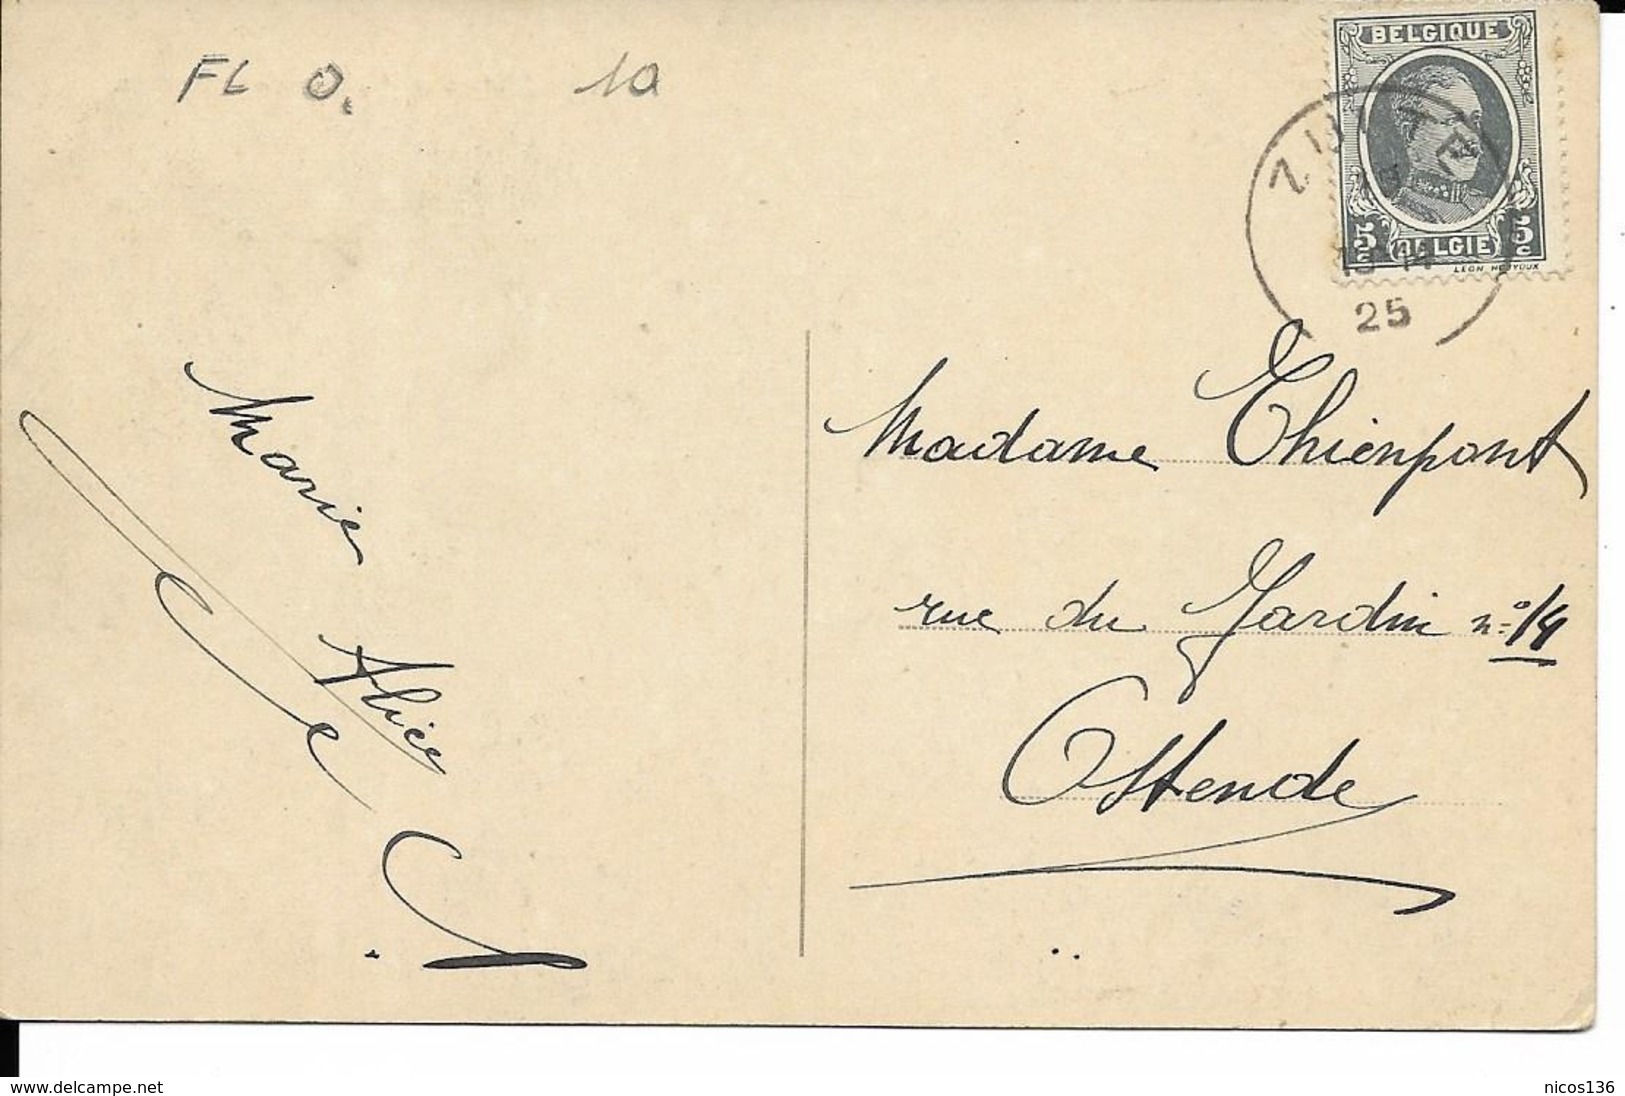 FL O. 10
BELGIQUE
ZULTE
5c BELGIE 5c
25
Marie
Alice
Madame Thienpont
rue du Jardin nº 14
Ostende
www.delcampe.net
nicos136